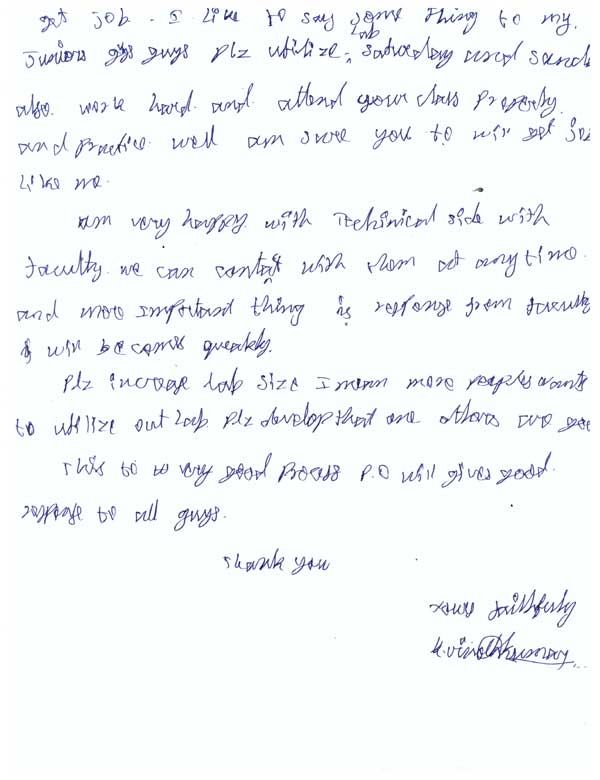 get job. I like to say some thing to my
Juniors guys plz utilize, lab saturday and sund
also. work hard. and. attend your class properly.
and practice. well am sure you to will get job
like me.
am very happy with Techinical side with
faculty. we can contat with them at any time.
and more important thing is response from faculty
will becomes queakly.
Plz increase lab size I mean more peoples wants
to utilize out lab plz develop that one others are
This to very good P.O will gives good.
response to all guys.
Thank you
yours faithfully